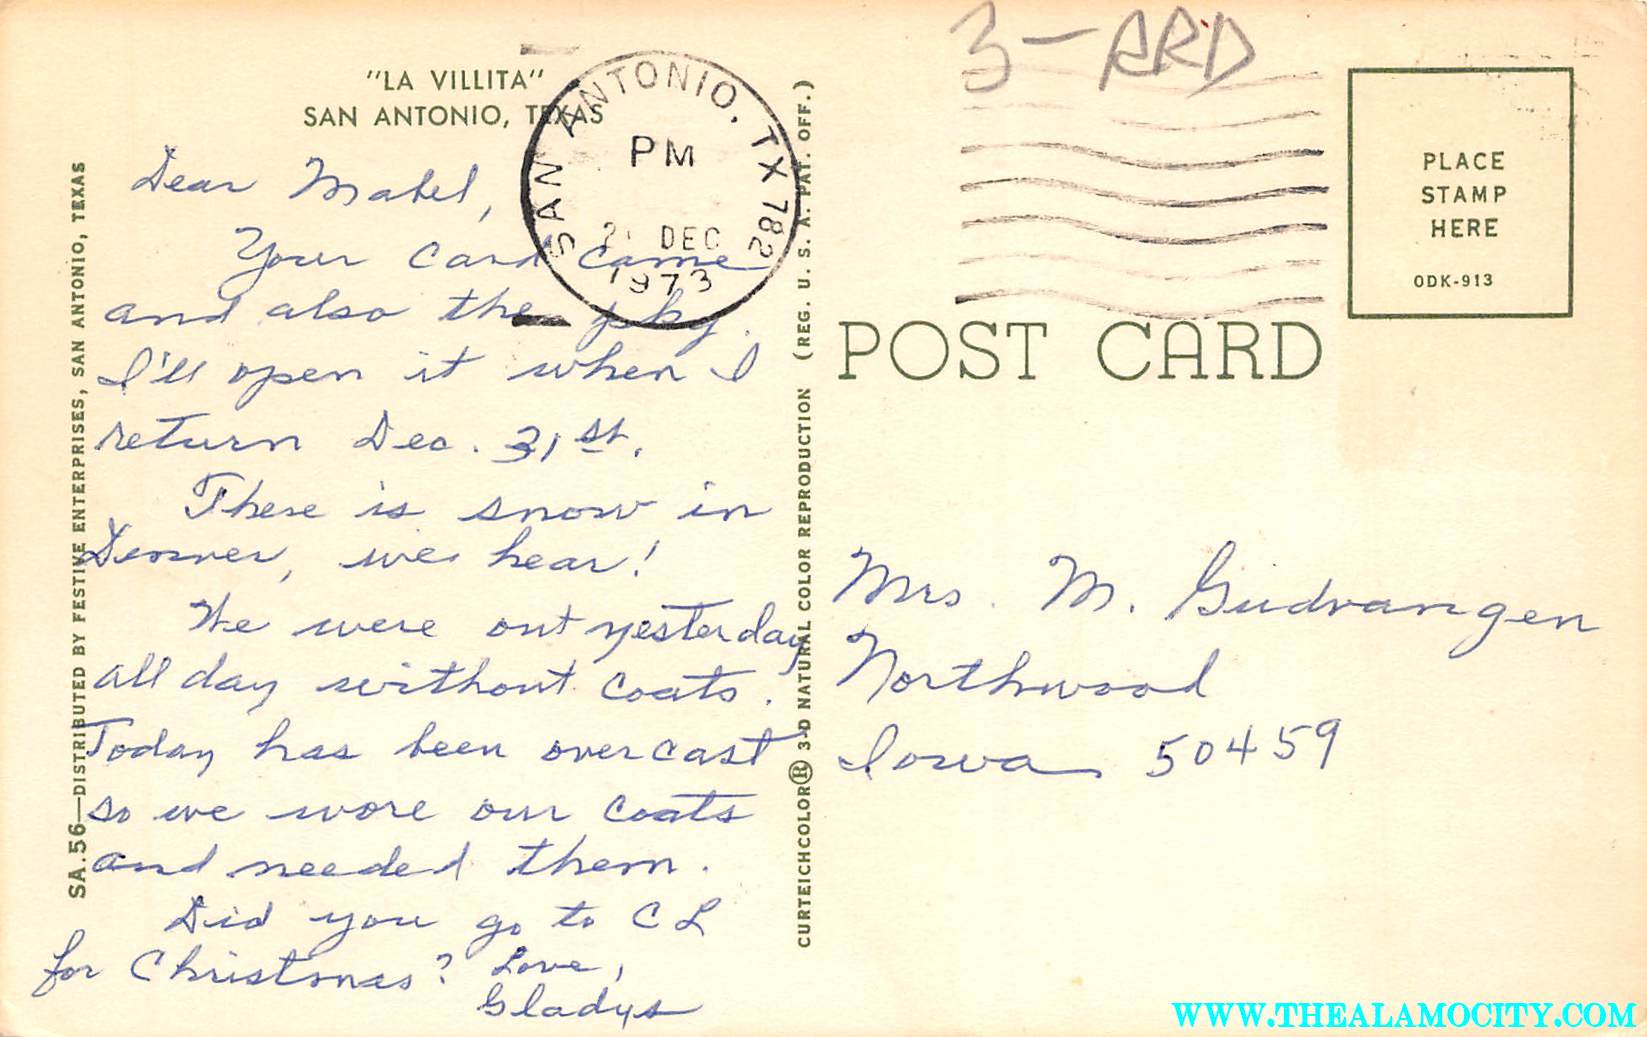 "LA VILLITA"
SAN ANTONIO, TEXAS
Dear Mabel,
Your card came
and also the pkg.
I'll open it when I
return Dec. 31st.
There is snow in
Denver, we hear!
We were out yesterday
all day without coats.
Today has been overcast
so we wore our coats
and needed them.
Did you go to C L
for Christmas? Love,
Gladys
SA.56—DISTRIBUTED BY FESTIVE ENTERPRISES, SAN ANTONIO, TEXAS
SAN ANTONIO, TX 782
PM
DEC
1973
CURTEICHCOLOR® 3-D NATURAL COLOR REPRODUCTION (REG. U. S. A. PAT. OFF.)
3-RRD
PLACE
STAMP
HERE
ODK-913
POST CARD
Mrs. M. Gudvangen
Northwood
Iowa 50459
WWW.THEALAMOCITY.COM